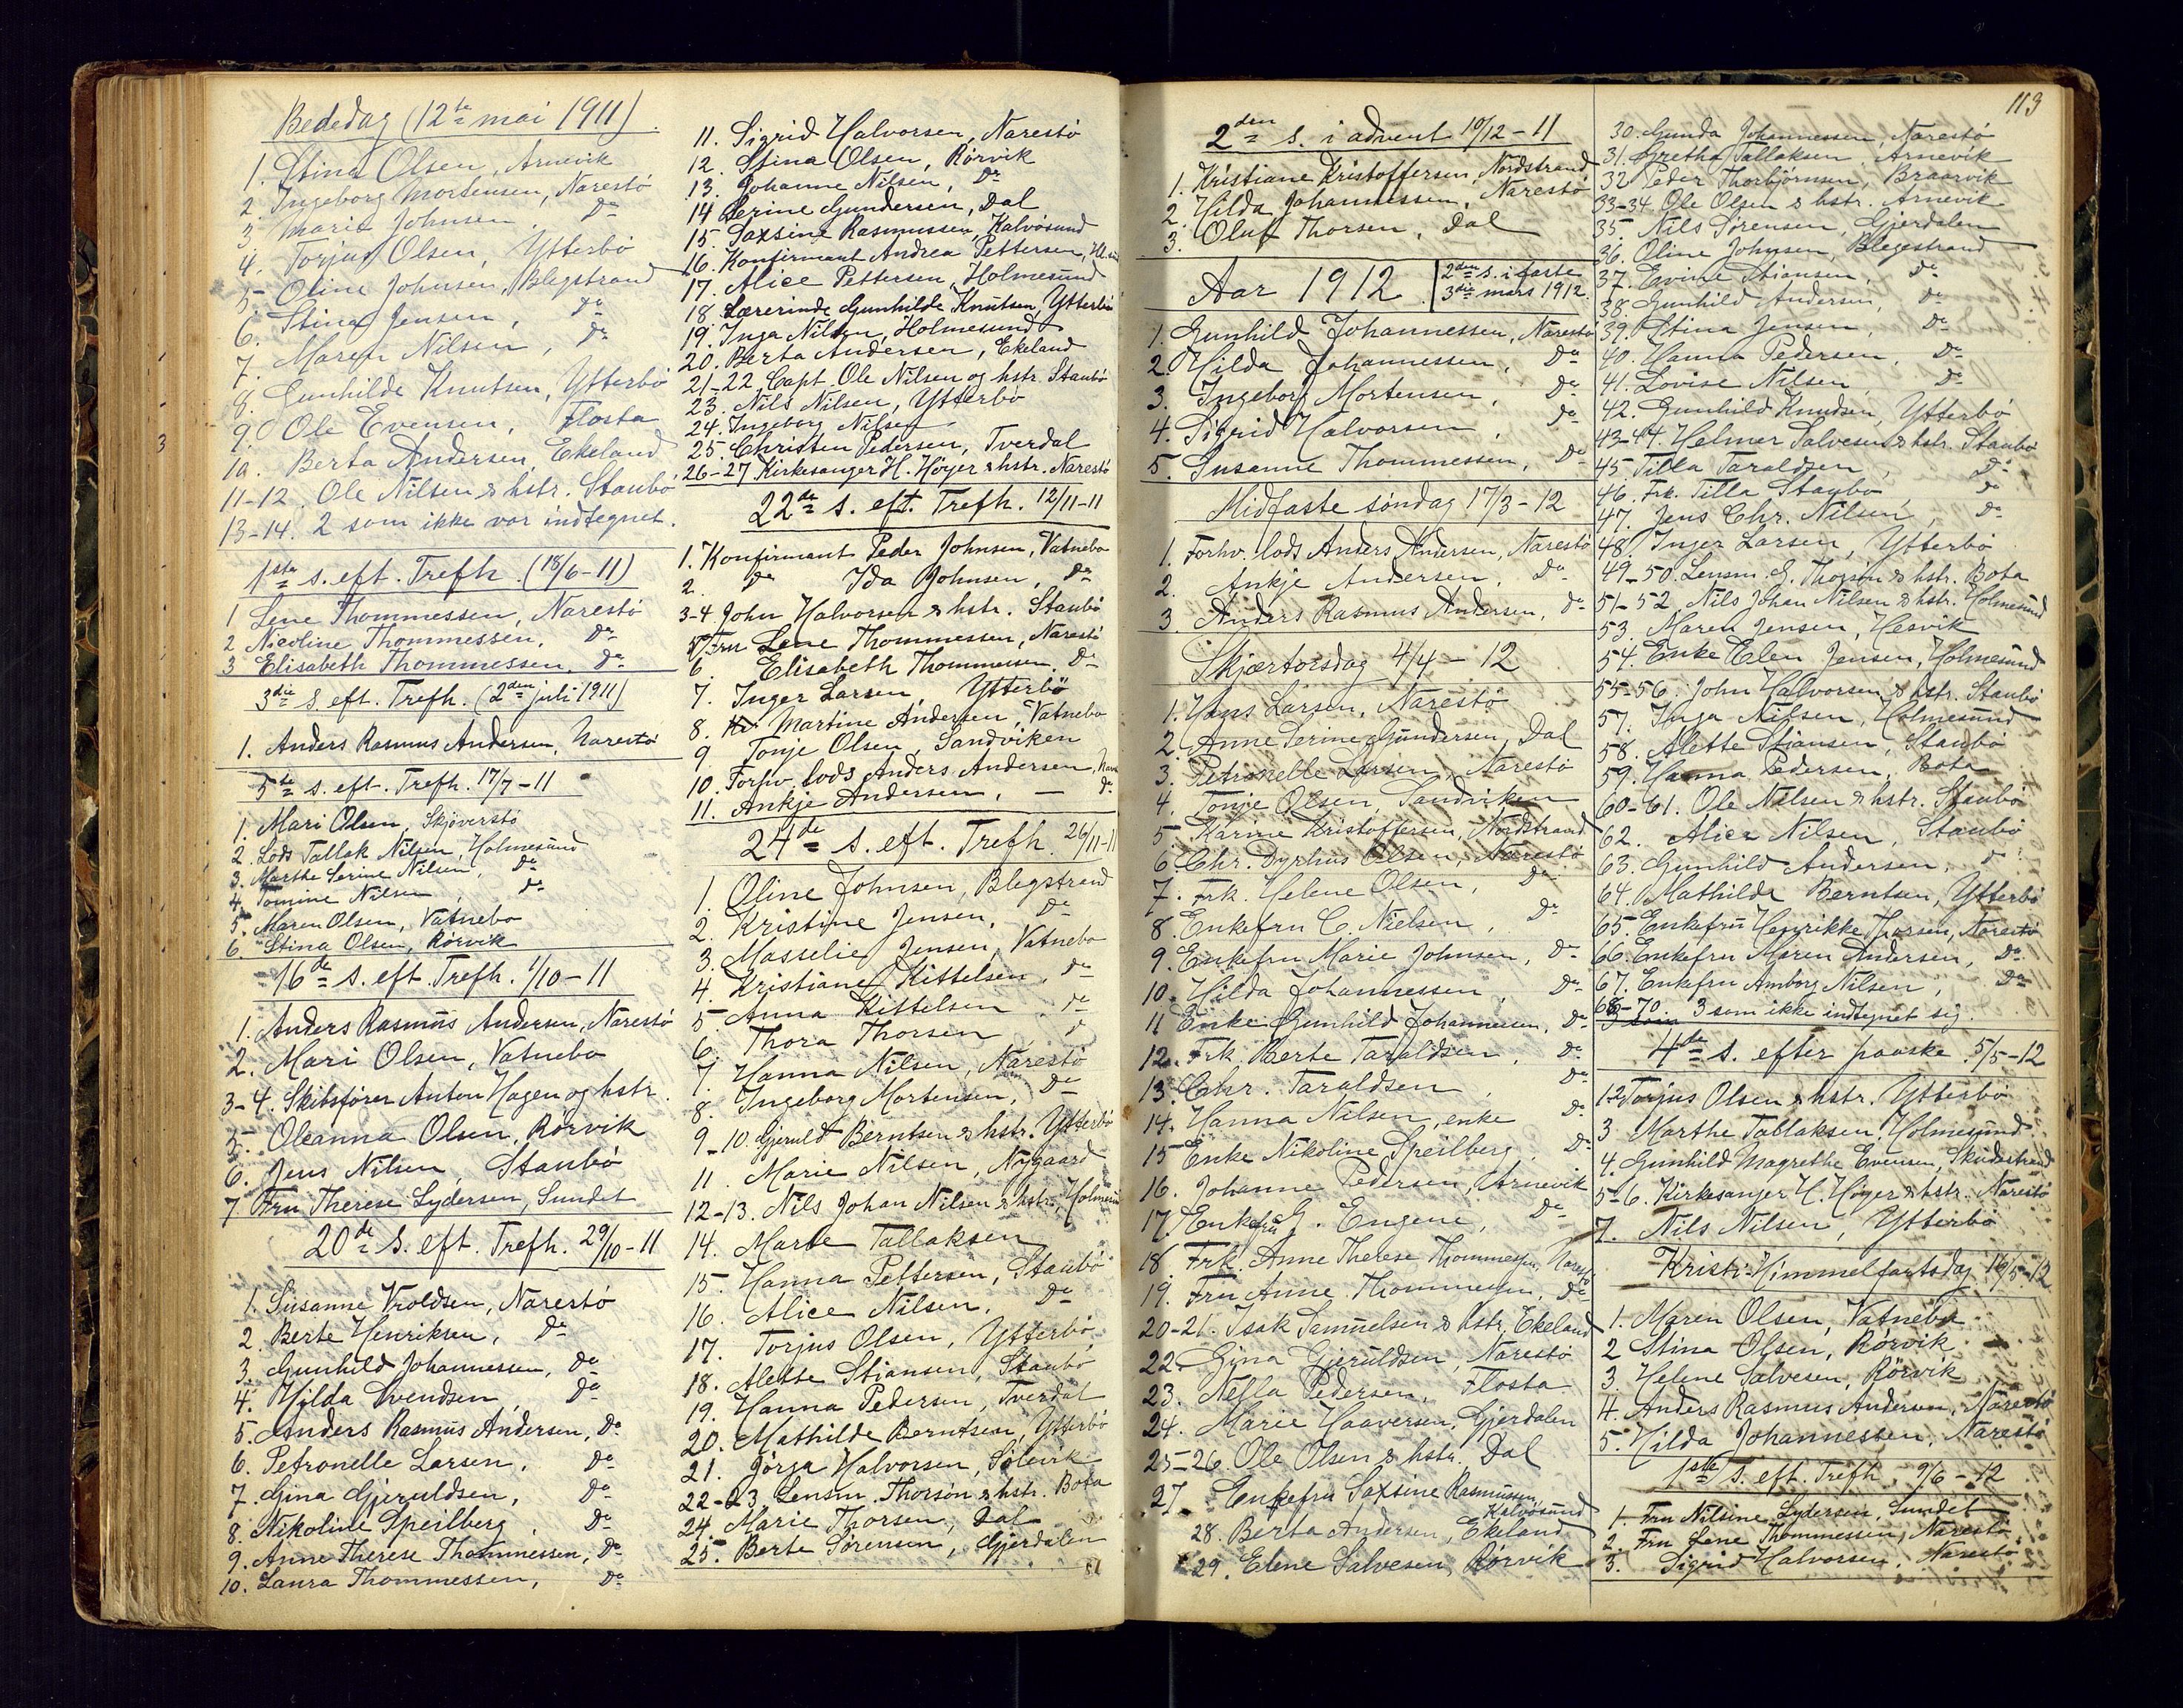 Bededag (12te mai 1911)
1. Stina Olsen, Arnevik
2. Ingeborg Mortensen, Narestö
3. Marie Johnsen, Do
4. Torjus Olsen, Ytterbö
5. Oline Johnsen, Blegstrand
6. Stina Jensen, Do
7. Maren Nilsen, Do
8. Gunhilde Knutsen, Ytterbö
9. Ole Evensen, Flosta
10. Berta Andersen, Ekeland
11-12. Ole Nilsen & hstr. Staubö
13-14. 2 som ikke var indtegnet.
1ste s. eft. Trefh. (18/6-11)
1 Lene Thommessen, Narestö
2 Nicoline Thommessen, Do
3 Elisabeth Thommessen, Do
3die s. eft. Trefh. (2den juli 1911)
1. Anders Rasmus Andersen, Narestö
5te s. eft. Trefh. 17/7-11
1. Mari Olsen, Skjöverstö
2. Lods Tallak Nilsen, Holmesund
3. Marthe Serine Nilsen, Do
4. Tomine Nilsen, Do
5. Maren Olsen, Vatnebo
6. Stina Olsen, Rörvik
16de s. eft. Trefh. 1/10-11
1. Anders Rasmus Andersen, Narestö
2. Mari Olsen, Vatnebo
3-4. Skibsförer Anton Hagen og hstr.
5. Oleanna Olsen, Rörvik
6. Jens Nilsen, Staubö
7. Fru Therese Lydersen, Sundet
20de s. eft. Trefh. 29/10-11
1. Susanne Vroldsen, Narestö
2. Berte Henriksen, Do
3. Gunhild Johannessen, Do
4. Hilda Svendsen, Do
5. Anders Rasmus Andersen, Do
6. Petronelle Larsen, Do
7. Gina Gjeruldsen, Do
8. Nikoline Speilberg, Do
9. Anne Therese Thommessen, Do
10. Laura Thommessen, Do
11. Sigrid Halvorsen, Narestö
12. Stina Olsen, Rörvik
13. Johanne Nilsen, Do
14 Serine Gundersen, Dal
15. Saxsine Rasmussen, Kalvösund
16. Konfirmant Andrea Pettersen,
17. Alice Pettersen, Holmesund
18. Lærerinde Gunhilde Knutsen, Ytterbö
19. Inga Nilsen, Holmesund
20. Berta Andersen, Ekeland
21-22. Capt. Ole Nilsen og hstr. Staubö
23. Nils Nilsen, Ytterbö
24. Ingeborg Nilsen
25. Christen Pedersen, Tverdal
26-27 Kirkesanger H. Höyer & hstr. Narestö
22de s. eft. Trefh. 12/11-11
1. Konfirmant Peder Johnsen, Vatnebo
2. Do Ida Johnsen, Do
3-4. John Halvorsen & hstr. Staubö
5. Fru Lene Thommessen, Narestö
6. Elisabeth Thommessen, Do
7. Inger Larsen, Ytterbö
8. Martine Andersen, Vatnebo
9. Tonje Olsen, Sandviken
10. Forhv. lods Anders Andersen, Nare
11. Ankje Andersen, — Do
24de s. eft. Trefh. 26/11-11
1. Oline Johnsen, Blegstrand
2. Kristine Jensen, Do
3. Masselie Jensen, Vatnebo
4. Kristiane Kittelsen, Do
5. Anna Kittelsen, Do
6. Thora Thorsen
7. Hanna Nilsen, Narestö
8. Ingeborg Mortensen, Do
9-10. Gjeruld Berntsen & hstr. Ytterbö
11. Marie Nilsen, Nygaard
12-13. Nils Johan Nilsen & hstr. Holmesund
14. Marte Tallaksen
15. Hanna Pettersen, Staubö
16. Alice Nilsen, Do
17. Torjus Olsen, Ytterbö
18. Alette Stiansen, Staubö
19. Hanna Pedersen, Tverdal
20. Mathilde Berntsen, Ytterbö
21. Jörga Halvorsen, Solevik
22-23 Lensm. Thorsön & hstr. Bota
24. Marie Thorsen, Dal
25. Berte Sörensen, Gjerdalen
113
2den s. i advent 10/12-11
1. Kristiane Kristoffersen, Nordstrand
2. Hilda Johannessen, Narestö
3. Oluf Thorsen, Dal
Aar 1912. 2den s. i faste 3die mars 1912.
1. Gunhild Johannessen, Narestö
2. Hilda Johannessen, Do
3. Ingeborg Mortensen, Do
4. Sigrid Halvorsen, Do
5. Susanne Thommessen, Do
Midfaste söndag 17/3-12
1. Forhv. lods Anders Andersen, Narestö
2. Ankje Andersen, Do
3. Anders Rasmus Andersen, Do
Skjærtorsdag 4/4-12
1. Hans Larsen, Narestö
2. Anne Serine Gundersen, Dal
3. Petronelle Larsen, Narestö
4. Tonje Olsen, Sandviken
5. Karine Kristoffersen, Nordstrand
6. Chr. Dyrhus Olsen, Narestö
7. Frk. Helene Olsen, Do
8. Enkefru C. Nielsen, Do
9. Enkefru Marie Johnsen, Do
10. Hilda Johannessen, Do
11 Enke Gunhild Johannessen, Do
12. Frk. Berte Taraldsen, Do
13. Chr. Taraldsen, Do
14. Hanna Nilsen, enke Do
15 Enke Nikoline Speilberg, Do
16. Johanne Pedersen, Arnevik
17. Enkefru G. Engene, Do
18. Frk. Anne Therese Thommessen, Narestö
19. Fru Anne Thommessen, Do
20-21. Isak Samuelsen & hstr. Ekeland
22. Gina Gjeruldsen, Narestö
23. Nella Pedersen, Flosta
24. Marie Haaversen, Gjerdalen
25-26. Ole Olsen & hstr. Dal
27. Enkefru Saxsine Rasmussen, Kalvösund
28. Berta Andersen, Ekeland
29. Elene Salvesen, Rörvik
30. Gunda Johannessen, Narestö
31. Grethe Tallaksen, Arnevik
32. Peder Thorbjörnsen, Braarvik
33-34. Ole Olsen & hstr. Arnevik
35. Nils Sörensen, Gjerdalen
36. Oline Johnsen, Blegestrand
37. Evine Stiansen, Do
38. Gunhild Andersen, Do
39. Stina Jensen, Do
40. Hanna Pedersen, Do
41. Lovise Nilsen, Do
42. Gunhild Knudsen, Ytterbö
43-44. Helmer Salvesen & hstr. Staubö
45 Tilla Taraldsen, Do
46. Frk. Tilla Staubö, Do
47. Jens Chr. Nilsen, Do
48. Inger Larsen, Ytterbö
49-50. Lensm. G. Thorsön & hstr. Bota
51-52. Nils Johan Nilsen & hstr. Holmesund
53. Maren Jensen, Hesvik
54. Enke Elen Jensen, Holmesund
55-56. John Halvorsen & hstr. Staubö
57. Inga Nilsen, Holmesund
58. Alette Stiansen, Staubö
59. Hanna Pedersen, Bota
60-61. Ole Nilsen & hstr. Staubö
62. Alice Nilsen, Staubö
63. Gunhild Andersen, Do
64. Mathilde Berntsen, Ytterbö
65. Enkefru Henrikke Thorsen, Narestö
66. Enkefru Maren Andersen, Do
67. Enkefru Amborg Nilsen, Do
68-70. 3 som ikke indtegnet sig.
4de s. efter paaske 5/5-12
1-2 Torjus Olsen & hstr. Ytterbö
3 Marthe Tallaksen, Holmesund
4. Gunhild Magrethe Evensen, Skudestrand
5-6. Kirkesanger H. Höyer & hstr. Narestö
7. Nils Nilsen, Ytterbö
Kristi Himmelfartsdag 16/5-12
1. Maren Olsen, Vatnebo
2 Stina Olsen, Rörvik
3 Helene Salvesen, Rörvik
4. Anders Rasmus Andersen, Narestö
5. Hilda Johannessen, Narestö
1ste s. eft. Trefh. 9/6-12
1. Fru Nilsine Lydersen, Sundet
2. Fru Lene Thommessen, Narestö
3. Sigrid Halvorsen, Narestö